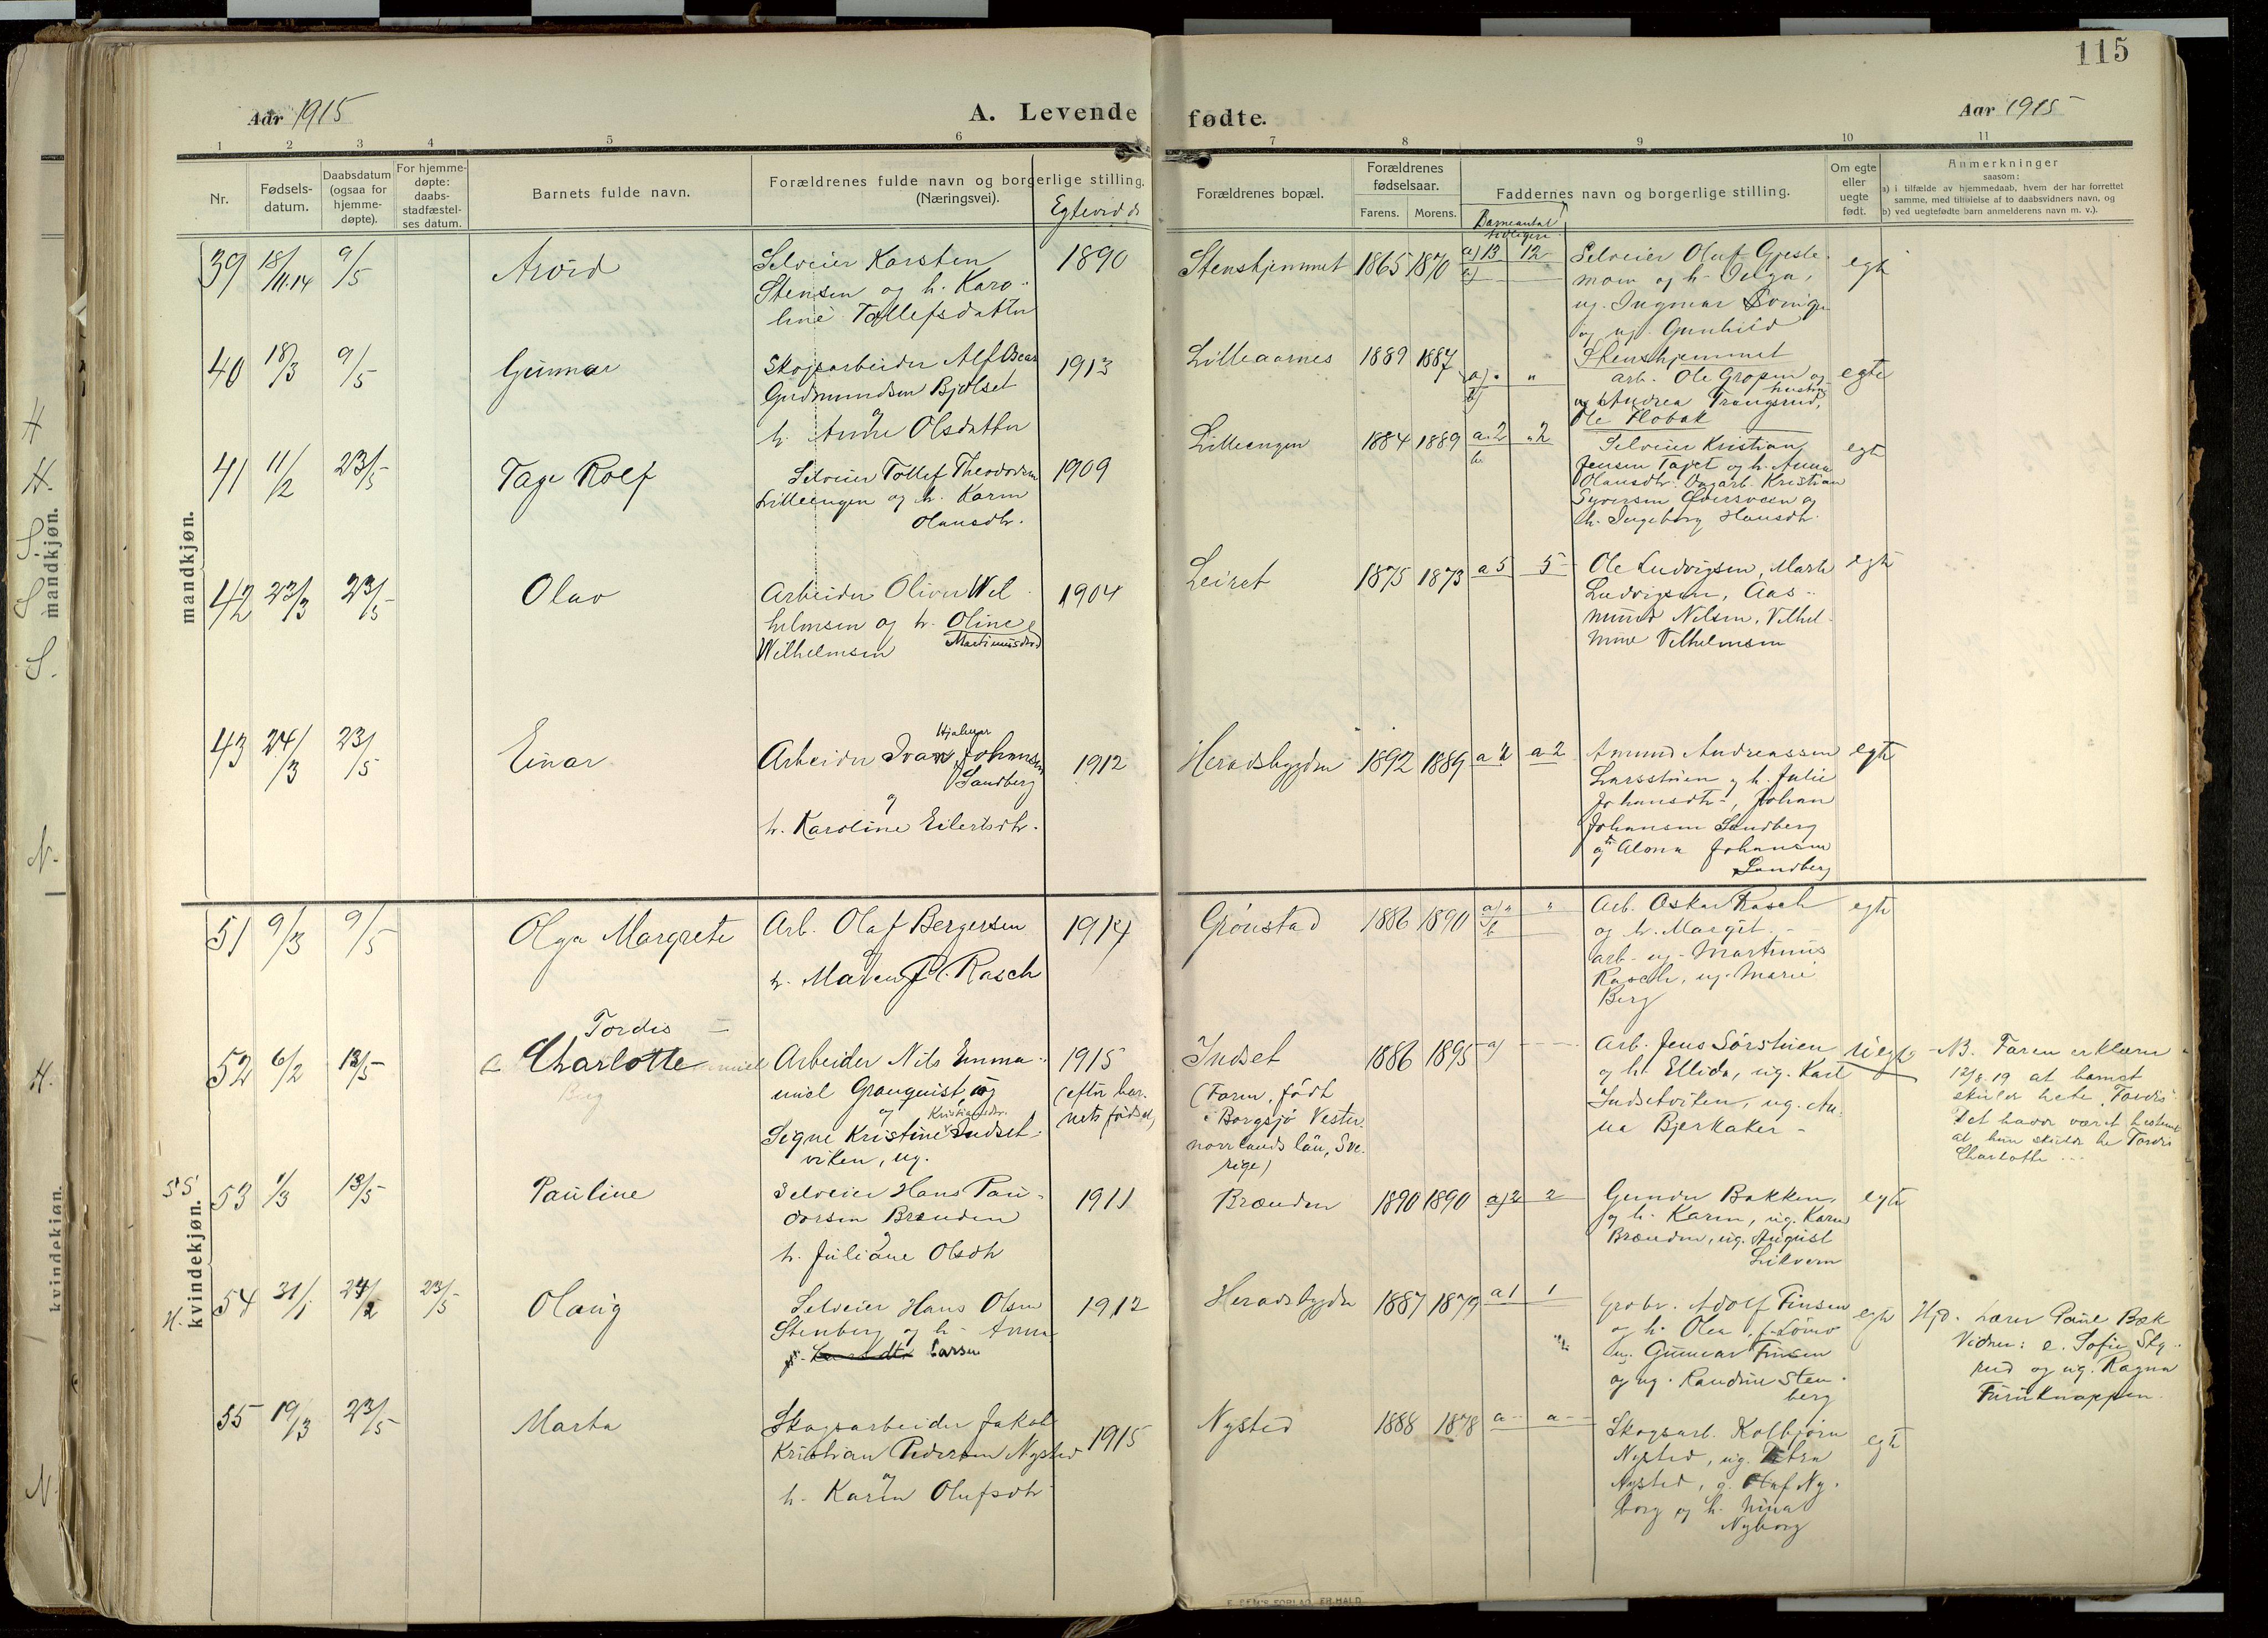 115
Aar 1915
A. Levende fødte.
Aar 1915
1 2 3 4 5 6 7 8 9 10 11
Nr.
Fødsels-
datum.
Daabsdatum
(ogsaa for
hjemme-
døpte).
For hjemme-
døpte:
daabs-
stadfæstel-
ses datum.
Barnets fulde navn.
Forældrenes fulde navn og borgerlige stilling.
(Næringsvei).
Egtevid d:
Forældrenes bopæl.
Forældrenes
fødselsaar.
Farens. Morens.
Faddernes navn og borgerlige stilling.
Barneantal
tidligere
Om egte
eller
uegte
født.
Anmerkninger
saasom:
a) i tilfælde av hjemmedaab, hvem der har forrettet
samme, med tilføielse af to daabsvidners navn, og
b) ved uegtefødte barn anmelderens navn m. v.).
mandkjøn.
39 18/11.14 9/5 Arvid
Selveier Karsten
Stensen og h. Karo-
line Tollefsdatter
1890
Stenshjemmet 1865 1870 a) 13 12
b)
Selveier Oluf Gjesle-
moen og h. Helga,
ug. Ingmar
og ug. Gunhild
Stenshjemmet
egte
40 18/3 9/5 Gunnar
Skogsarbeider Alf Oscar
Gudmundsen Bjølset
og
h. Anne Olsdatter
1913
Lilleaarnes 1889 1887 a) " "
b)
arb. Ole Gropen og
hustru
og Andrea Trangsrud,
Ole Flobak
egte
41 11/2 23/5 Tage Rolf
Selveier Tollef Theodorsen
Lilleengen og h. Karen
Olausdtr.
1909
Lilleengen 1884 1889 a. 2 " 2
b.
Selveier Kristian
Jensen Taget og h. Anna
Olausdtr. Dagarb. Kristian
Syversen Øversveen og
h. Ingeborg Hansdtr.
egte
42 23/3 23/5 Olav
Arbeider Oliver Wil-
helmsen og h. Oline
Wilhelmsen Martinusdtr
1904
Leiret 1875 1873 a 5 5
Ole Ludvigsen, Marte
Ludvigsen, Aas-
mund Nilsen, Vilhel-
mine Vilhelmsen
egte
43 24/3 23/5 Einar
Hjalmar
Arbeider Ivar Johansen
Sandberg
og
h. Karoline Eilertsdtr.
1912
Heradsbygden 1892 1889 a 2 a 2
Amund Andreassen
Larsstuen og h. Julie
Johansdtr., Johan
Johansen Sandberg
og h. Alma Johansen
Sandberg
egte
kvindekjøn.
51 9/3 9/5 Olga Margrete
Arb. Olaf Bergersen
og
h. Maren P. Rasch
1914
Grønstad 1886 1890 a) " "
b
Arb. Oskar Rasch
og h. Margit.
arb. ug. Martinus
Rasch, ug. Marie
Berg
egte
Tordis
52 6/2 13/5 Charlotte
Arbeider Nils Emma-
nuel Granquist og
og Kristiansdtr.
Signe Kristine Indset-
viken, ug.
1915
(efter bar-
nets fødsel)
Indset
(Faren, født
i Borgsjø Vester-
norrlands län, Sve-
rige)
1886 1895 a)
Arb. Jens Sørstuen
og h. Ellida, ug. Karl
Indsetviken, ug. An-
na Bjerkaker
uegte
NB. Faren erklærer
12/8 19 at barnet
skulde hete "Tordis"
Det havde været bestemt
at hun skulde he Tordis
Charlotte
53 1/3 13/5 Pauline
Selveier Hans Pau-
dorsen Brænden
og
h. Juliane Olsdtr
1911
Brænden 1890 1890 a) 2 2
Gunder Bakken,
og h. Karen, ug. Karen
Brænden, ug. August
Likvern
egte
H. 54 31/1 27/2 23/5 Olaug
Selveier Hans Olsen
Stenberg og h. Anna
Larsen
1912
Heradsbygden 1887 1879 a 1 1
Grobr. Adolf Finsen
og h. Olea, f. Lømo
ug. Gunnar Finsen
og ug. Randine Sten-
berg
egte
Hjd. Lærer Paul Bæk
Vidner: e. Sofie Sky-
rud og ug. Ragna
Furuknappen.
55 19/3 23/5 Marta
Skogsarbeider Jakob
Kristian Pedersen Nysted
og
h. Karen Olufsdtr
1915
Nysted 1888 1878 a - a -
Skogsarb. Kolbjørn
Nysted, ug. Petra
Nysted, g. Oluf Ny-
borg og h. Nina
Nyborg
egte
mandkjøn.
kvindekjøn.